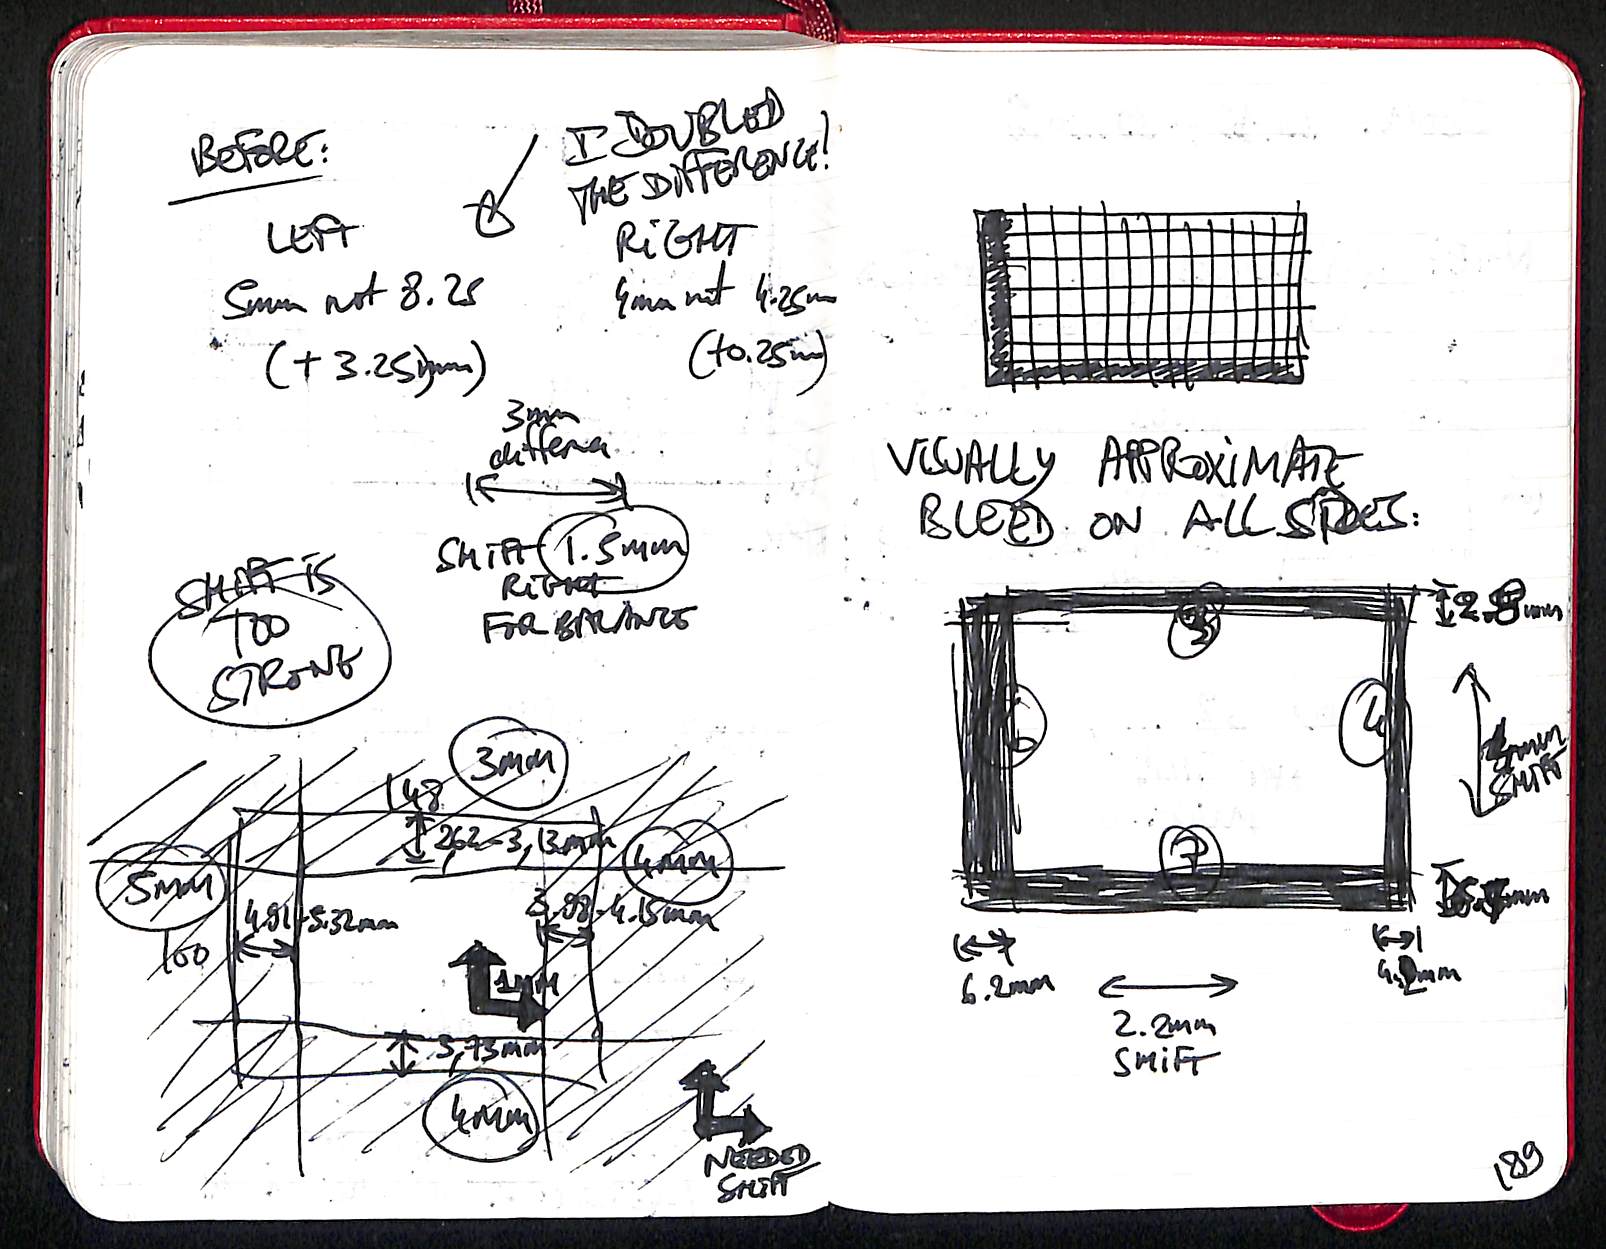 BEFORE:
I DOUBLED
THE DIFFERENCE!
LEFT
RiGHT
5mm not 8.25
4mm not 4.25m
(+3.25)mm)
(+0.25m)
3mm
SHiFT 1.5mm
RiGHT
FOR BALANCE
SHIFT iS
TOO
STRONG
3mm
148
2,62-3,13mm
5mm
4mm
4.91-5.32mm
3.98-4.15mm
100
1MM
3,73mm
4mm
NEEDED
SHiFT
VISUALLY APPROXiMATE
BLEED ON ALL SIDES:
2.8mm
3
6
4
4mm
SHIFT
7
6.2mm
4.2mm
2.2mm
SHiFT
189